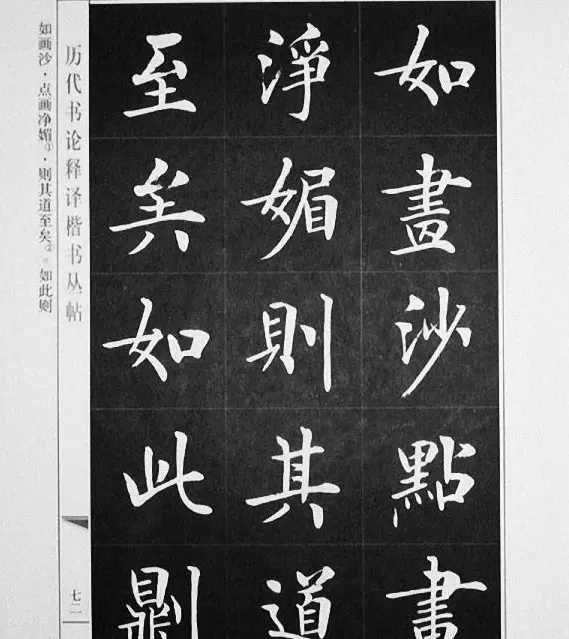 如畫沙點畫
淨媚則其道
至矣如此則
历代书论释译楷书丛帖
七二
如画沙，点画净媚①，则其道至矣②。如此则